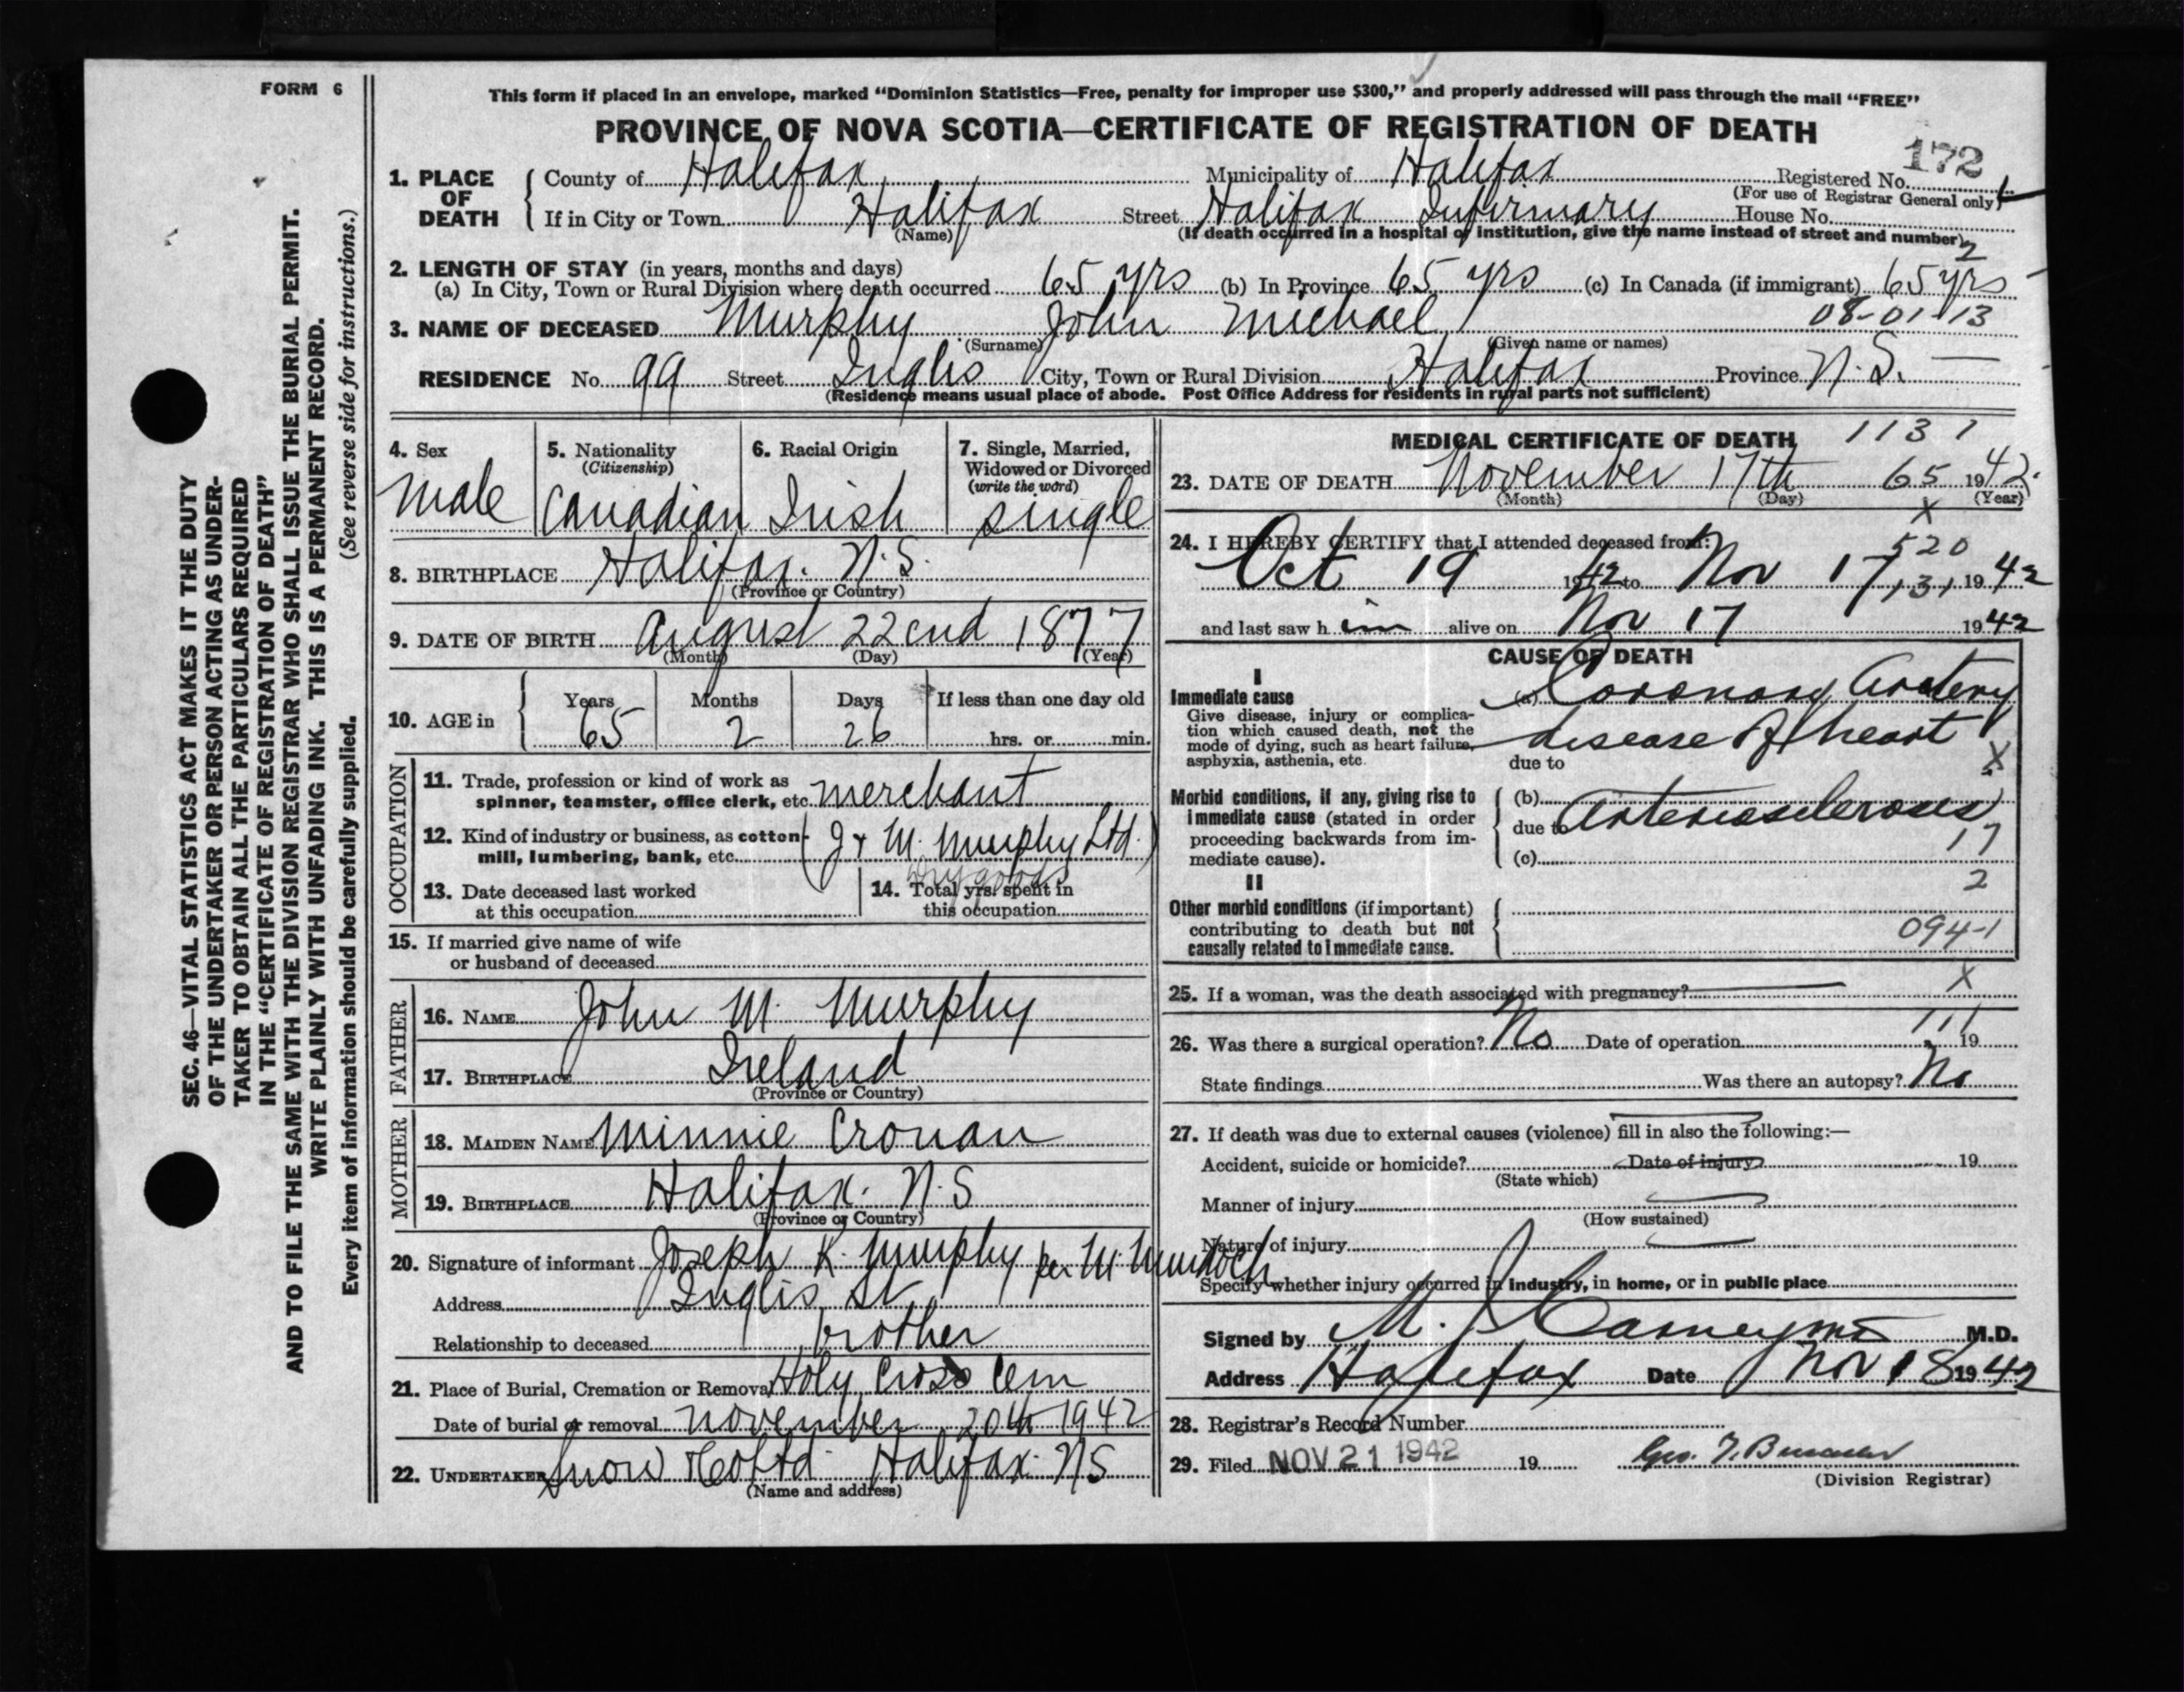 FORM 6
This form if placed in an envelope, marked "Dominion Statistics—Free, penalty for improper use $300," and properly addressed will pass through the mail "FREE"
PROVINCE OF NOVA SCOTIA—CERTIFICATE OF REGISTRATION OF DEATH
172
1. PLACE OF DEATH { County of Halifax Municipality of Halifax Registered No.
(For use of Registrar General only)
If in City or Town Halifax Street Halifax Infirmary House No.
(Name) (If death occurred in a hospital or institution, give the name instead of street and number)
2
2. LENGTH OF STAY (in years, months and days)
(a) In City, Town or Rural Division where death occurred 65 yrs (b) In Province 65 yrs (c) In Canada (if immigrant) 65 yrs
08-01-13
3. NAME OF DECEASED Murphy John Michael
(Surname) (Given name or names)
RESIDENCE No. 99 Street Inglis City, Town or Rural Division Halifax Province N.S.
(Residence means usual place of abode. Post Office Address for residents in rural parts not sufficient)
SEC. 46—VITAL STATISTICS ACT MAKES IT THE DUTY
OF THE UNDERTAKER OR PERSON ACTING AS UNDER-
TAKER TO OBTAIN ALL THE PARTICULARS REQUIRED
IN THE "CERTIFICATE OF REGISTRATION OF DEATH"
AND TO FILE THE SAME WITH THE DIVISION REGISTRAR WHO SHALL ISSUE THE BURIAL PERMIT.
WRITE PLAINLY WITH UNFADING INK. THIS IS A PERMANENT RECORD.
Every item of information should be carefully supplied. (See reverse side for instructions.)
4. Sex
male
5. Nationality
(Citizenship)
Canadian
6. Racial Origin
Irish
7. Single, Married,
Widowed or Divorced
(write the word)
single
8. BIRTHPLACE Halifax. N.S.
(Province or Country)
9. DATE OF BIRTH August 22cnd 1877
(Month) (Day) (Year)
10. AGE in { Years Months Days If less than one day old
65 2 26 hrs. or min.
OCCUPATION
11. Trade, profession or kind of work as
spinner, teamster, office clerk, etc. merchant
12. Kind of industry or business, as cotton-
mill, lumbering, bank, etc. (J & M. Murphy Ltd.)
Dry goods
13. Date deceased last worked
at this occupation
14. Total yrs. spent in
this occupation
15. If married give name of wife
or husband of deceased
FATHER
16. NAME John M. Murphy
17. BIRTHPLACE Ireland
(Province or Country)
MOTHER
18. MAIDEN NAME Minnie Cronan
19. BIRTHPLACE Halifax. N.S
(Province or Country)
20. Signature of informant Joseph K. Murphy per M. Murdoch
Address Inglis St
Relationship to deceased brother
21. Place of Burial, Cremation or Removal Holy Cross Cem
Date of burial or removal November 20th 1942
22. UNDERTAKER Snow & Co Ltd. Halifax. NS
(Name and address)
MEDICAL CERTIFICATE OF DEATH 1131
23. DATE OF DEATH November 17th 65 1942.
(Month) (Day) (Year)
X
24. I HEREBY CERTIFY that I attended deceased from: 520
Oct 19 1942 to Nov 17 131 1942
and last saw him alive on Nov 17 1942
CAUSE OF DEATH
I
Immediate cause
Give disease, injury or complica-
tion which caused death, not the
mode of dying, such as heart failure,
asphyxia, asthenia, etc.
(a) Coronary Artery
disease of heart
due to X
Morbid conditions, if any, giving rise to
immediate cause (stated in order
proceeding backwards from im-
mediate cause).
(b)
due to Arteriosclerosis
17
(c)
2
II
Other morbid conditions (if important)
contributing to death but not
causally related to immediate cause.
094-1
25. If a woman, was the death associated with pregnancy? X
111
26. Was there a surgical operation? No Date of operation 19
State findings Was there an autopsy? No
27. If death was due to external causes (violence) fill in also the following:—
Accident, suicide or homicide? Date of injury 19
(State which)
Manner of injury
(How sustained)
Nature of injury
Specify whether injury occurred in industry, in home, or in public place
Signed by M. J. Carney M.D.
Address Halifax Date Nov 18 1942
28. Registrar's Record Number
29. Filed NOV 21 1942 19
(Division Registrar)